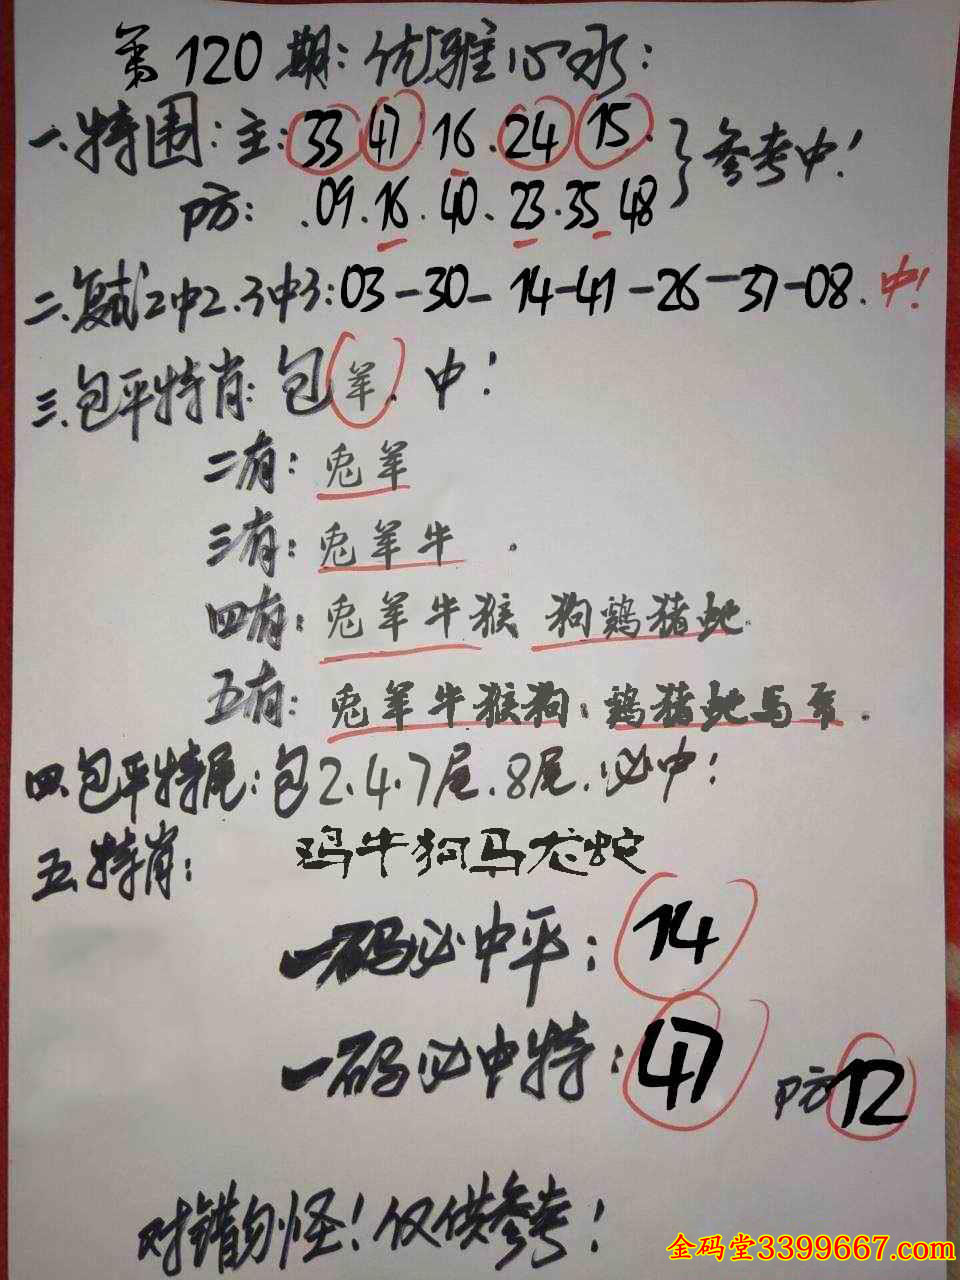 第120期:优雅心水:
一.特围:主:33 47·16·24 15·
防: .09.16.40.23.35 48
}参考中!
二.复试2中2.3中3:03-30-14-41-26-37-08.中!
三.包平特肖:包羊.中!
二有:兔羊
三有:兔羊牛.
四有:兔羊牛猴 狗鸡猪蛇.
五有:兔羊牛猴狗:鸡猪蛇马
四.包平特尾:包2.4.7尾.8尾.必中!
五.特肖: 鸡牛狗马龙蛇
一码必中平:14
一码必中特:47 防12
对错勿怪!仅供参考!
金码堂3399667.com